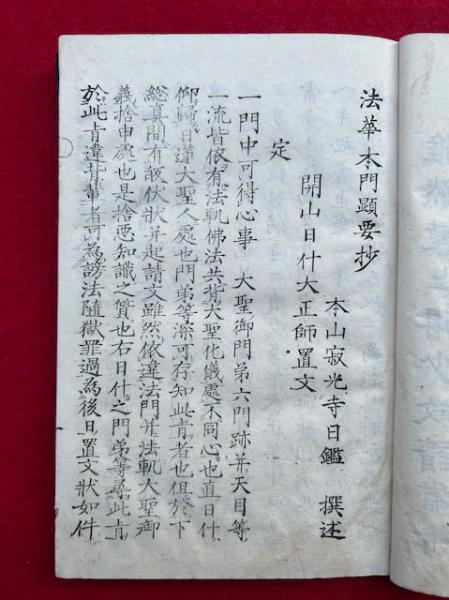 法華本門顕要抄
本山寂光寺日鑑　撰述
開山日什大正師置文
定
一門中可得心事　大聖御門弟六門跡并天目等
一流皆依有法軌佛法共背大聖化儀處不同心也直日什
仰歸日蓮大聖人處也門弟等深可存知此旨者也但於下
総真間有敬伏状并起請文雖然依違法門并法軌大聖御
義捨申處也是捨悪知識之賢也右日什之門弟等尋此旨
於此旨違背輩者可為謗法隨獄罪過為後日置文状如件